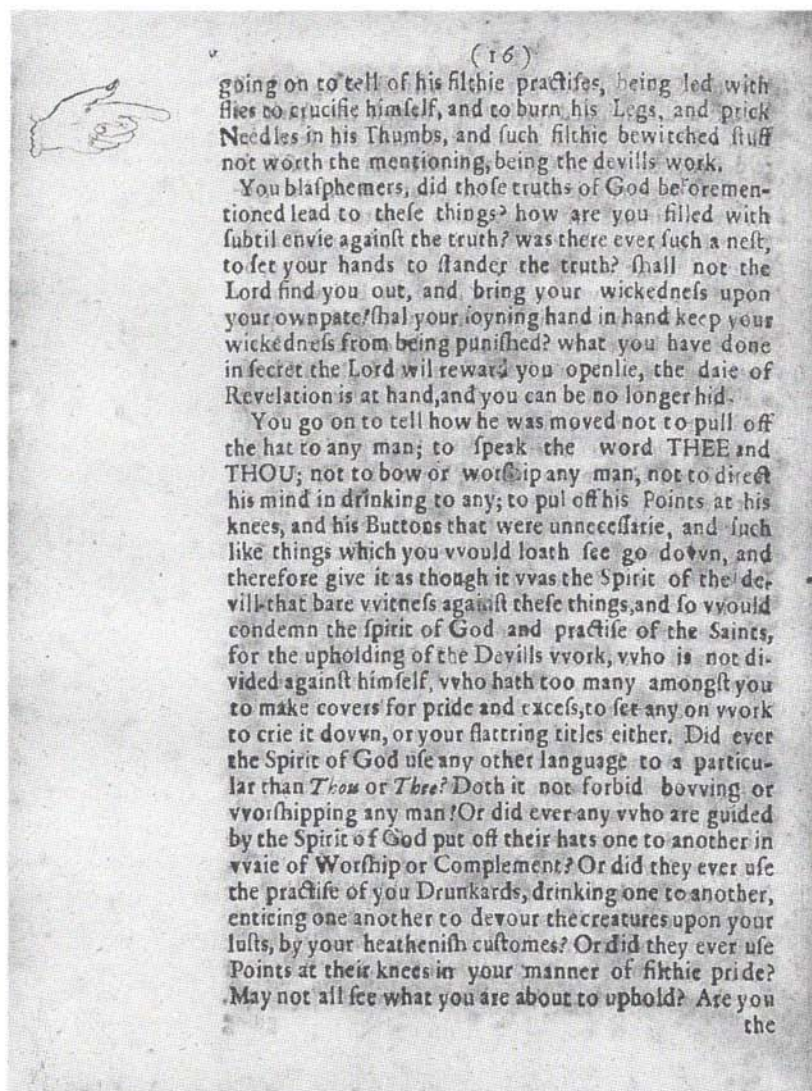 (16)
going on to tell of his filthie practiſes, being led with
flies to crucifie himſelf, and to burn his Legs, and prick
Needles in his Thumbs, and ſuch filthie bewitched ſtuff
not worth the mentioning, being the devills work.
You blaſphemers, did thoſe truths of God beforemen-
tioned lead to theſe things? how are you filled with
ſubtil envie againſt the truth? was there ever ſuch a neſt,
to ſet your hands to ſlander the truth? ſhall not the
Lord find you out, and bring your wickedneſs upon
your own pate? ſhal your ioyning hand in hand keep your
wickedneſs from being puniſhed? what you have done
in ſecret the Lord wil reward you openlie, the daie of
Revelation is at hand, and you can be no longer hid.
You go on to tell how he was moved not to pull off
the hat to any man; to ſpeak the word THEE and
THOU; not to bow or worſhip any man, not to direct
his mind in drinking to any; to pul off his Points at his
knees, and his Buttons that were unneceſſarie, and ſuch
like things which you vvould loath ſee go dovvn, and
therefore give it as though it vvas the Spirit of the de-
vill that bare vvitneſs againſt theſe things, and ſo vvould
condemn the ſpirit of God and practiſe of the Saints,
for the upholding of the Devills vvork, vvho is not di-
vided againſt himſelf, vvho hath too many amongſt you
to make covers for pride and exceſs, to ſet any on vvork
to crie it dovvn, or your flattring titles either. Did ever
the Spirit of God uſe any other language to a particu-
lar than Thou or Thee? Doth it not forbid bovving or
vvorſhipping any man? Or did ever any vvho are guided
by the Spirit of God put off their hats one to another in
vvaie of Worſhip or Complement? Or did they ever uſe
the practiſe of you Drunkards, drinking one to another,
enticing one another to devour the creatures upon your
luſts, by your heatheniſh cuſtomes? Or did they ever uſe
Points at their knees in your manner of filthie pride?
May not all ſee what you are about to uphold? Are you
the